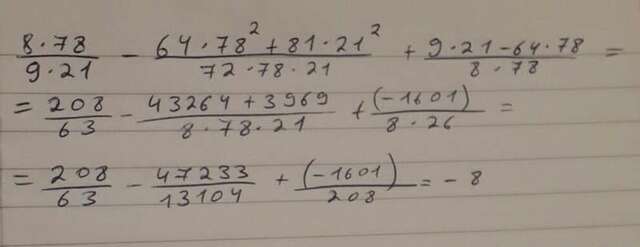 8·78/9·21 - (64·78² + 81·21²)/(72·78·21) + (9·21 - 64·78)/(8·78) =
= 208/63 - (43264 + 3969)/(8·78·21) + (-1601)/(8·26) =
= 208/63 - 47233/13104 + (-1601)/208 = - 8